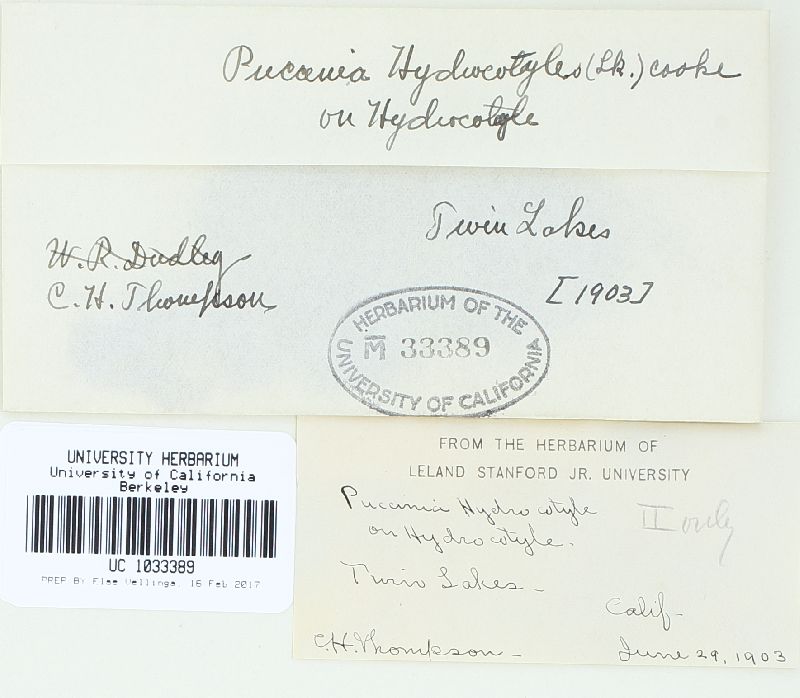 Puccinia Hydrocotyles (Lk.) Cooke
on Hydrocotyle
Twin Lakes
W. R. Dudley
C. H. Thompson
[1903]
HERBARIUM OF THE
M 33389
UNIVERSITY OF CALIFORNIA
UNIVERSITY HERBARIUM
University of California
Berkeley
UC 1033389
PREP BY Else Vellinga, 16 Feb 2017
FROM THE HERBARIUM OF
LELAND STANFORD JR. UNIVERSITY
Puccinia Hydrocotyle
on Hydrocotyle.
II only
Twin Lakes -
Calif -
C.H. Thompson -
June 29, 1903